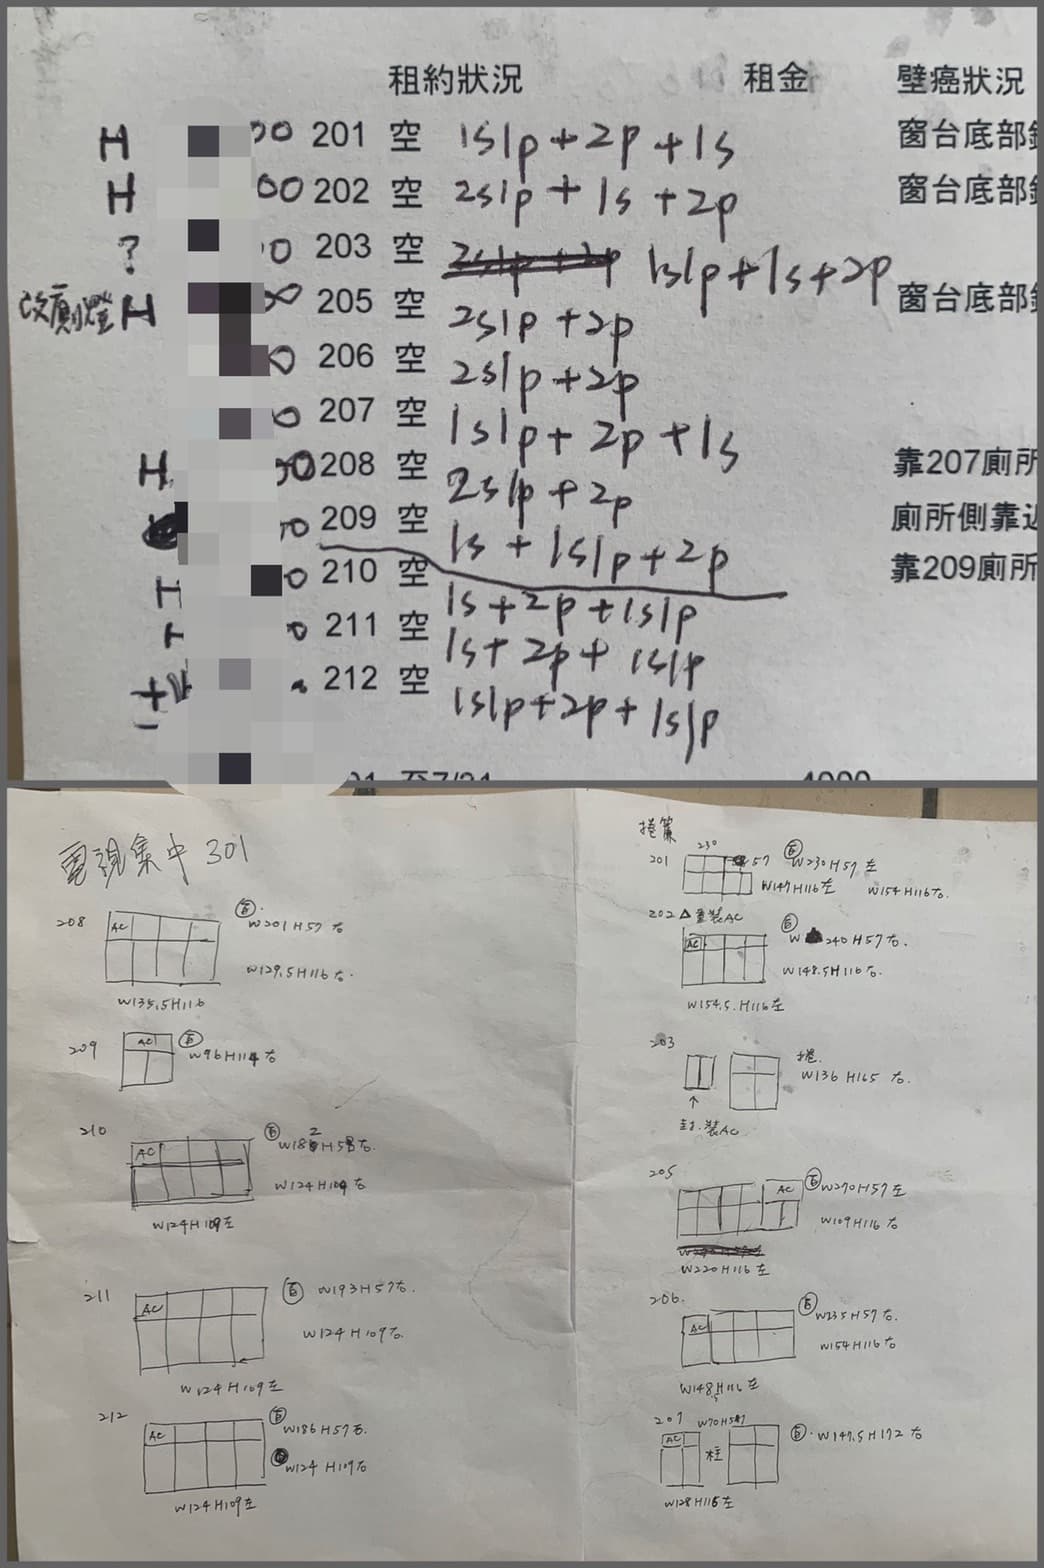 租約狀況 租金 壁癌狀況
H 00 201 空 1s1p+2p+1s 窗台底部
H 00 202 空 2s1p+1s+2p 窗台底部
? 0 203 空 2s1p+2p 1s1p+1s+2p
改廁燈 H 205 空 2s1p+2p 窗台底部
0 206 空 2s1p+2p
0 207 空 1s1p+2p+1s
H 00 208 空 2s1p+2p 靠207廁所
0 209 空 1s+1s1p+2p 廁所側靠近
H 0 210 空 1s+2p+1s1p 靠209廁所
0 211 空 1s+2p+1s1p
212 空 1s1p+2p+1s1p
電視集中 301
208
AC
百 W201H57右
W129.5H116右
W135.5H116
209
AC
百 W96H114右
210
AC
百 H58右
W124H109右
W124H109左
211
AC
百 W193H57右.
W124H109右.
W124H109左
212
AC
百 W186H57右.
W124H109右
W124H109左
捲簾
201 230 57
百 W230H57左
W147H116左 W154H116右.
202 △重裝AC
AC
百 W 240H57右.
W148.5H116右.
W154.5.H116左
203
捲.
W136H165右.
↑
封.裝AC
205
AC
百 W270H57左
W109H116右
W220H116左
206.
AC
百 W235H57右.
W154H116右
W148.5H116左
207 W70H57
AC
柱
百.W147.5H172右
W128H116左